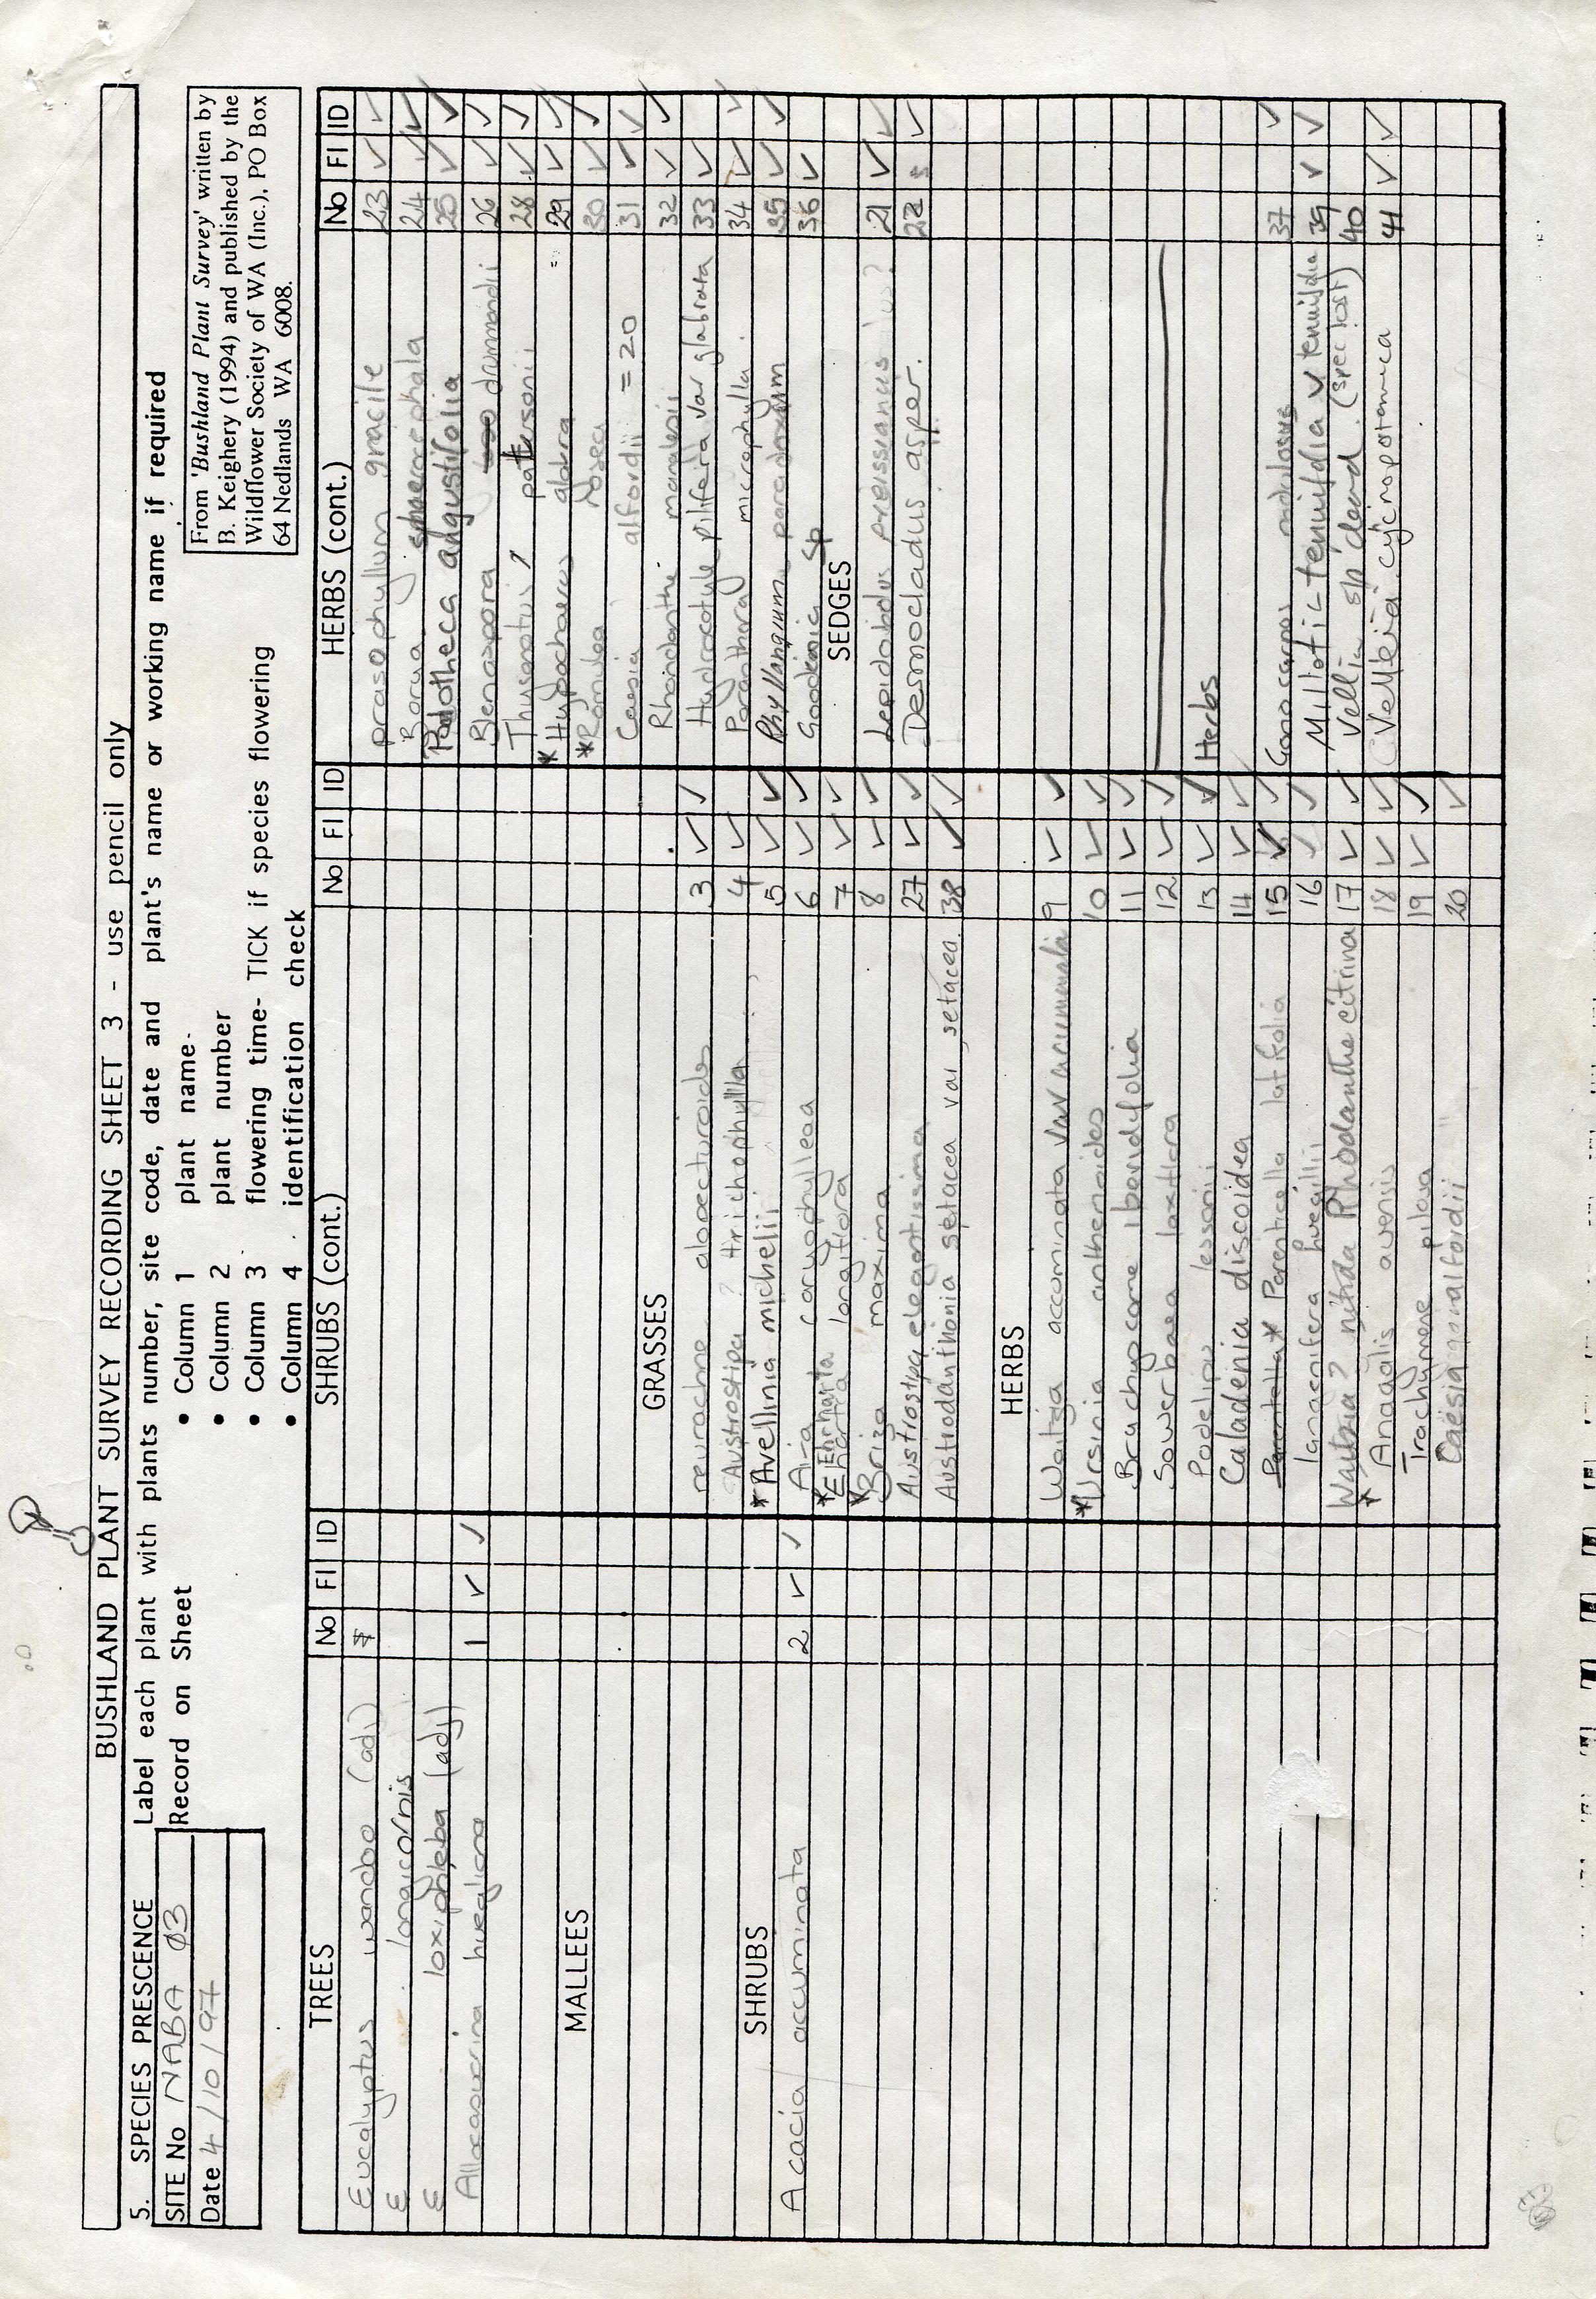 BUSHLAND PLANT SURVEY RECORDING SHEET 3 - use pencil only
5. SPECIES PRESCENCE
Label each plant with plants number, site code, date and plant's name or working name if required
SITE No NABA 03
Date 4/10/97
Record on Sheet
• Column 1 plant name
• Column 2 plant number
• Column 3 flowering time- TICK if species flowering
• Column 4 identification check
From 'Bushland Plant Survey' written by
B. Keighery (1994) and published by the
Wildflower Society of WA (Inc.), PO Box
64 Nedlands WA 6008.
TREES No Fl ID
Eucalyptus wandoo (adj)
E longicornis
E loxophleba (adj)
Allocasuarina huegliana 1 ✓ ✓
MALLEES
SHRUBS
Acacia accuminata 2 ✓ ✓
SHRUBS (cont.) No Fl ID
GRASSES
neurachne alopecturoides 3 ✓ ✓
Austrostipa ? trichophylla 4 ✓
* Avellinia michelii 5 ✓ ✓
Aira caryophylleaa 6 ✓ ✓
* Ehrharta longiflora 7 ✓ ✓
* Briza maxima 8 ✓ ✓
Austrostipa elegantissima 27 ✓ ✓
Austrodanthonia setacea var setacea 38 ✓ ✓
HERBS
Waitzia accuminata var accuminata 9 ✓ ✓
* Ursinia anthemoides 10 ✓ ✓
Brachyscome iberidifolia 11 ✓ ✓
Sowerbaea laxiflora 12 ✓ ✓
Podelipis lessonii 13 ✓ ✓
Caladenia discoidea 14 ✓ ✓
Parentella * Parenticella latifolia 15 ✓ ✓
lanagnifera huegillii 16 ✓ ✓
Waitzia? nitida Rhodanthe citrina 17 ✓ ✓
* Anagalis avensis 18 ✓ ✓
Trachymene pilosa 19 ✓ ✓
Caesia alfordii 20 ✓
HERBS (cont.) No Fl ID
prasophyllum gracile 23 ✓ ✓
Borya sphaerocephala 24 ✓ ✓
Podotheca angustifolia 25 ✓ ✓
Blenospora drummondii 26 ✓ ✓
Thysanotus? pattersonii 28 ✓ ✓
* Hypochaerus glabra 29 ✓ ✓
* Romulea rosea 30 ✓ ✓
Caesia alfordii = 20 31 ✓ ✓
Rhondanthe manglesii 32 ✓ ✓
Hydrocotyle pilifera var glabrata 33 ✓
Poranthera microphylla. 34 ✓ ✓
Phyllangium paradoxum 35 ✓ ✓
Goodenia sp 36 ✓
SEDGES
Lepidobolus preissianus ? 21 ✓ ✓
Desmocladus asper. 22 s ✓
Herbs
Gonocarpus nodulosus 37 ✓
Millotia tenuifolia v tenuifolia 39 ✓ ✓
Vellia sp dead. (spec lost) 40
(Velleia cycnopotamica 41 ✓ ✓